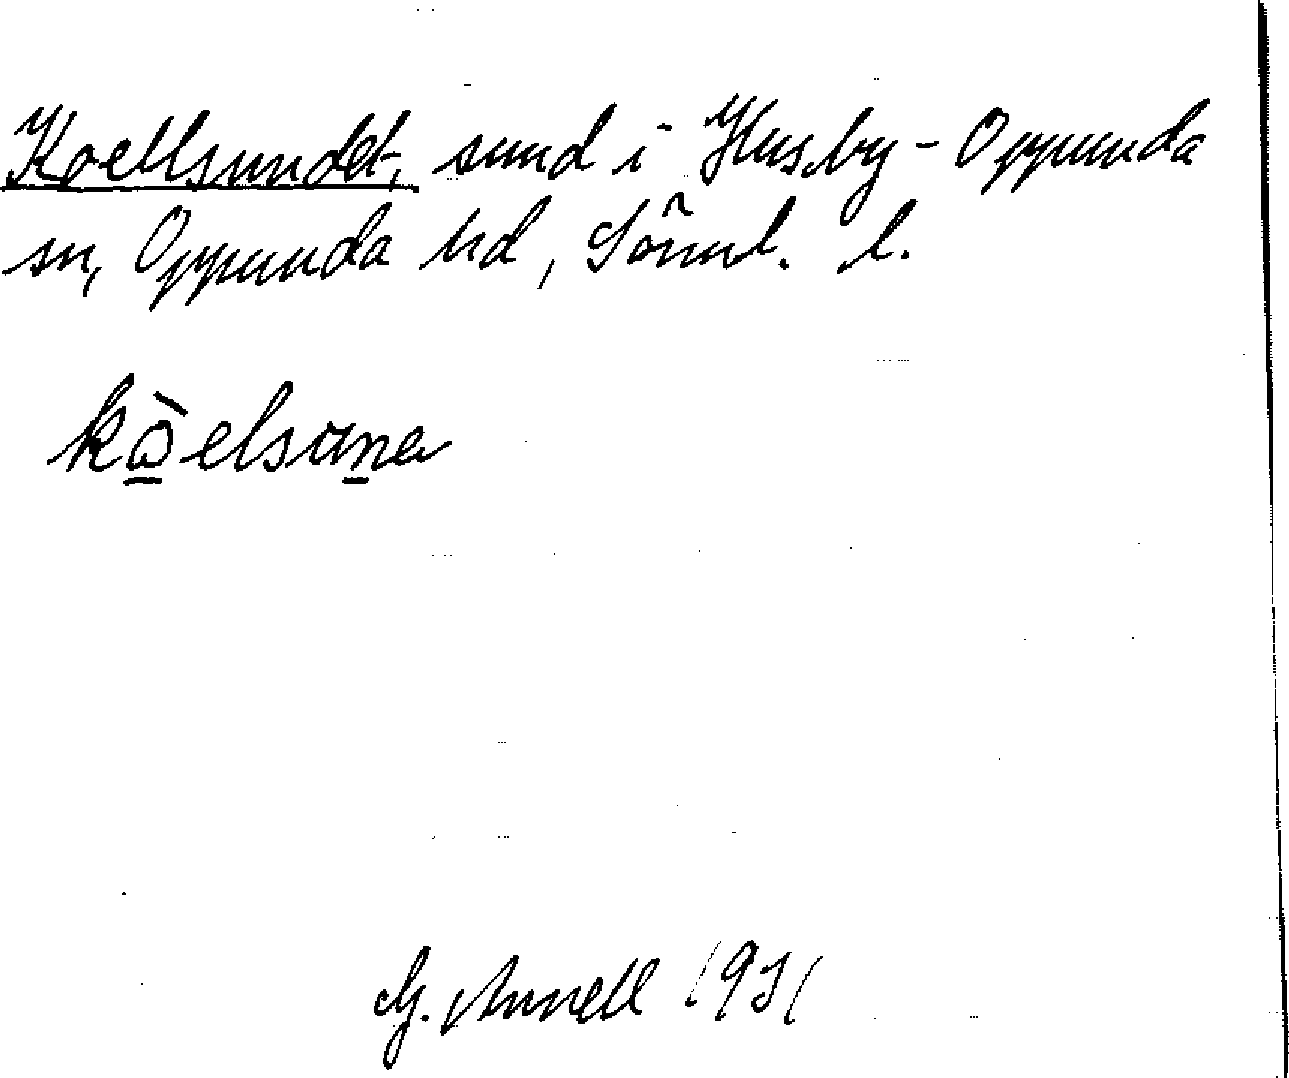 Koellsundet, sund i Husby-Oppunda
sn, Oppunda hd, Sörml. l.
kὼ̠elsuṉa
G. Annell 1931